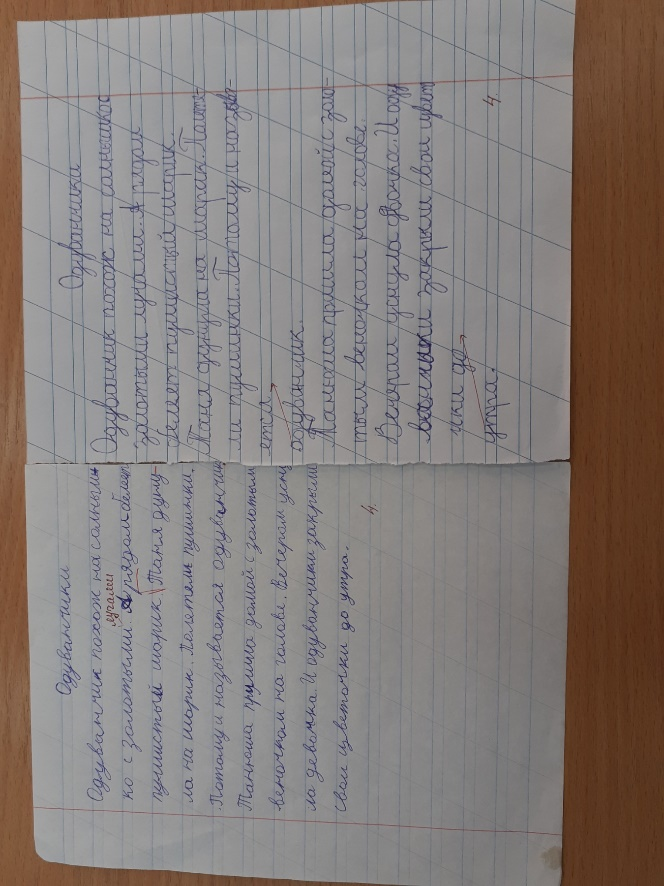 Одуванчики
Одуванчик похож на солныш
лучами
ко с золотыми. А рядом белеет
пушистый шарик Таня дуну-
ла на шарик. Полетели пушинки.
Потому и называется одуванчик
Танюша пришла домой с золотым
веночком на голове. вечером усн
ла девочка И одуванчики закрыли
свои цветочки до утра.
4.
Одуванчики
Одуванчик похож на солнышко
золотыми лучами. А рядом
белеет пушистый шарик
Таня дунула на шарик. Полете-
ли пушинки. Потому и назыв-
ется
одуванчик.
Танюша пришла домой с золо-
тым веночком на голове.
Вечером уснула девочка. И оду
ванчики закрыли свои цвет
чки до
утра.
4.